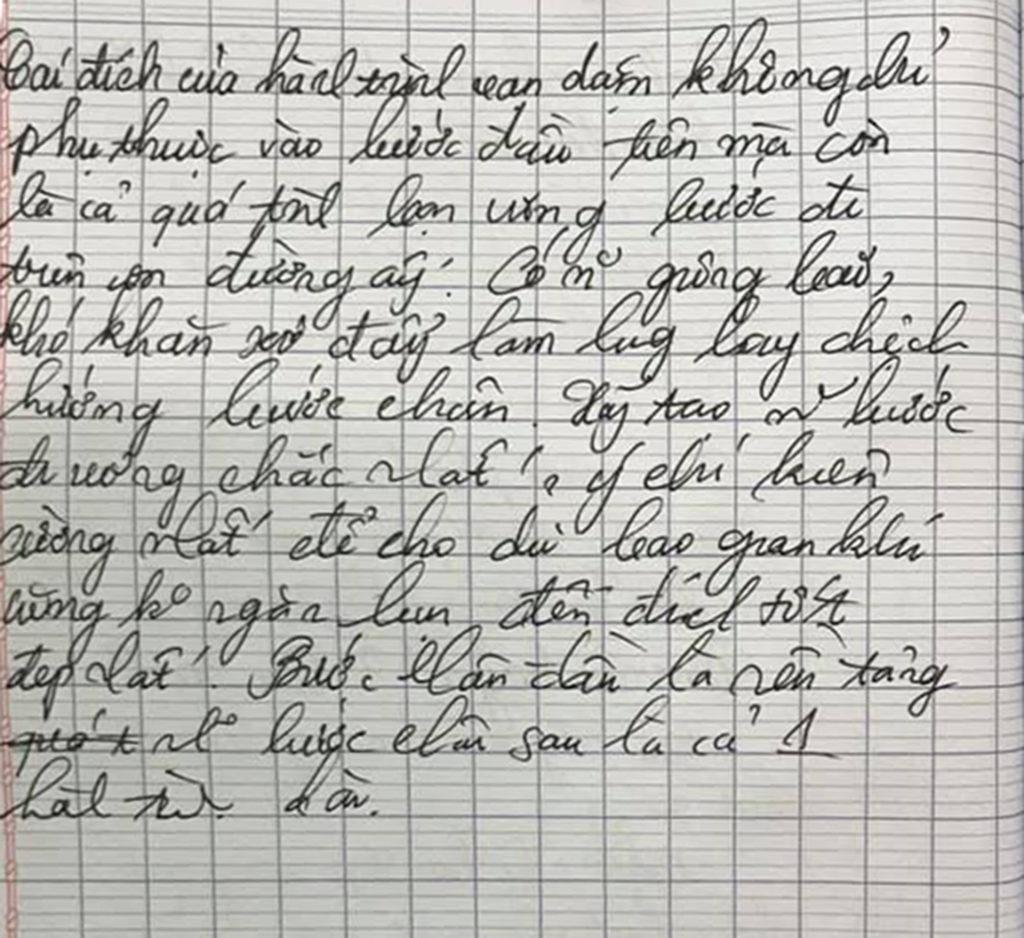 Cái đích của hành trình vạn dặm không chỉ
phụ thuộc vào bước đầu tiên mà còn
là cả quá trình bạn từng bước đi
trên con đường ấy. Có n~ giông bão,
khó khăn xô đẩy làm lung lay chệch
hướng bước chân. Hãy tạo n~ bước
đường chắc nhất, ý chí kiên
cường nhất để cho dù bao gian khó
cũng ko ngăn bạn đến đích tốt
đẹp nhất. Bước chân đầu là nền tảng
n~ bước chân sau là cả 1
hành trình dài.